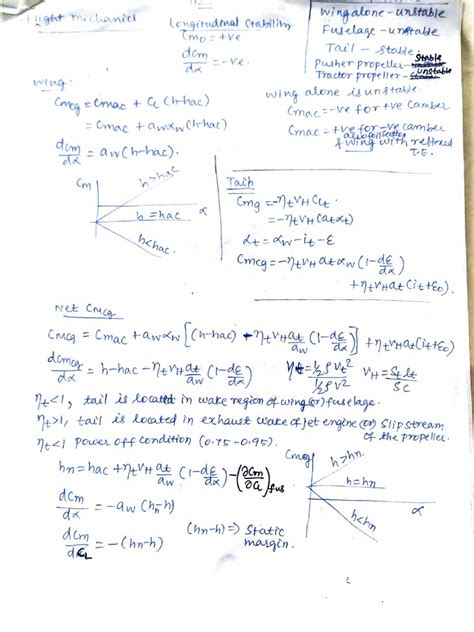 Flight mechanics
Longitudinal Stability
Cmo = +ve
dCm/dα = -ve.
Wing alone - unstable
Fuselage - unstable
Tail - stable
Pusher propeller - stable
Tractor propeller - unstable
Wing:
Cmcg = Cmac + CL (h-hac)
= Cmac + aw αw (h-hac)
dCm/dα = aw (h-hac).
wing alone is unstable.
Cmac = -ve for +ve camber
Cmac = +ve for -ve camber
aerofoil section
& wing with reflexed
T.E.
Cm
h>hac
h = hac
α
h<hac.
Tail
Cmg = -ηt VH CLt
= -ηt VH (at αt)
αt = αw - it - ε
Cmcg = -ηt VH at αw (1 - dε/dα)
+ ηt VH at (it + εo)
Net Cmcg
Cmcg = Cmac + aw αw [(h-hac) - ηt VH at/aw (1 - dε/dα)] + ηt VH at (it + εo)
dCmcg/dα = h - hac - ηt VH at/aw (1 - dε/dα)
ηt = ½ρVt²/½ρV²
VH = St lt/S c
ηt<1, tail is located in wake region of wing (or) fuselage.
ηt>1, tail is located in exhaust wake of jet engine (or) slip stream
of the propeller.
ηt<1 power off condition (0.75-0.95).
hn = hac + ηt VH at/aw (1 - dε/dα) - (∂Cm/∂CL)fus
dCm/dα = -aw (hn-h)
dCm/dCL = -(hn-h)
(hn-h) => Static
margin.
Cmcg
h>hn
h=hn
α
h<hn